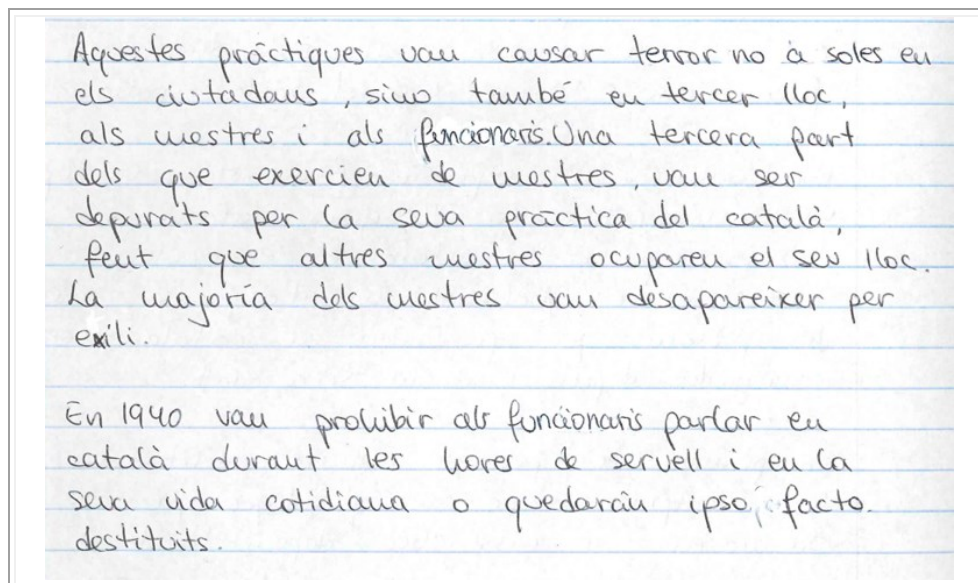 Aquestes pràctiques van causar terror no à soles en
els ciutadans, sino també en tercer lloc,
als mestres i als funcionaris. Una tercera part
dels que exercien de mestres, van ser
depurats per la seva pràctica del català,
fent que altres mestres ocuparen el seu lloc.
La majoría dels mestres van desapareixer per
exili.
En 1940 van prohibir als funcionaris parlar en
català durant les hores de servell i en la
seva vida cotidiana o quedaràn ipso, facto.
destituits.